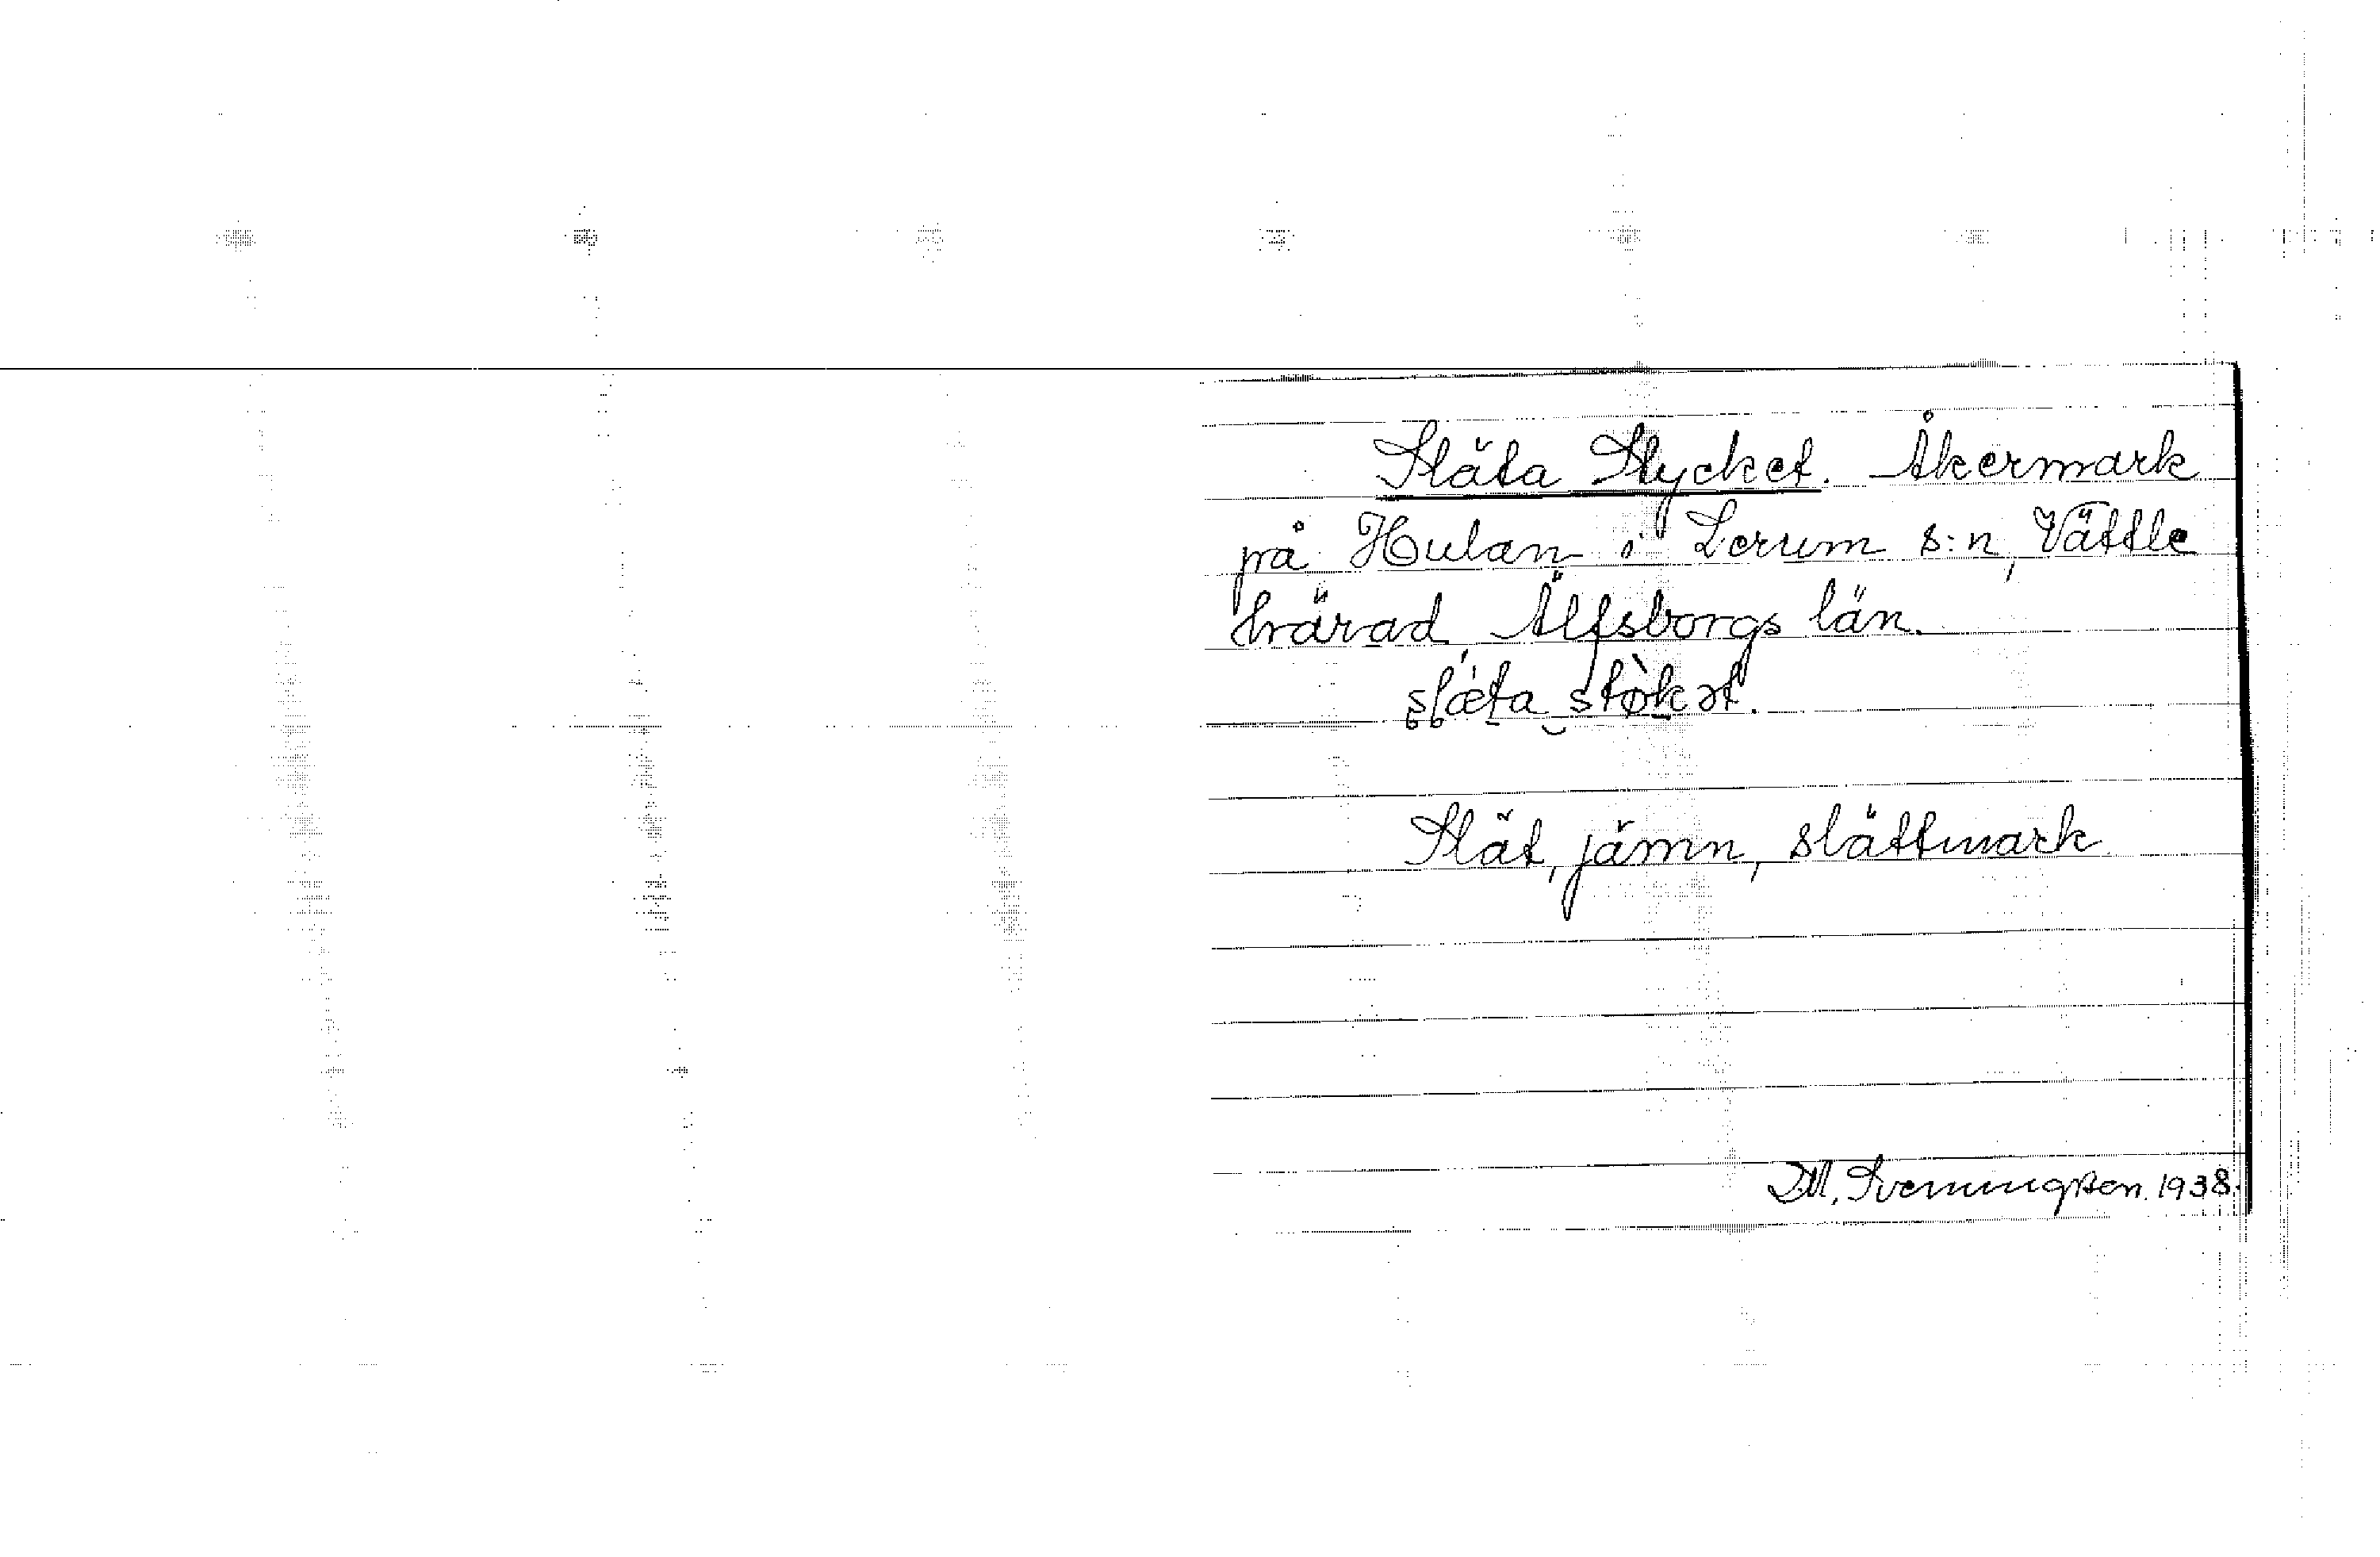 Släta Stycket. Åkermark
på Hulan i Lerum s:n, Vättle
härad, Älfsborgs län.
slæta stòkət.
Slät, jämn, slättmark.
D.M. Svenningsson. 1938.